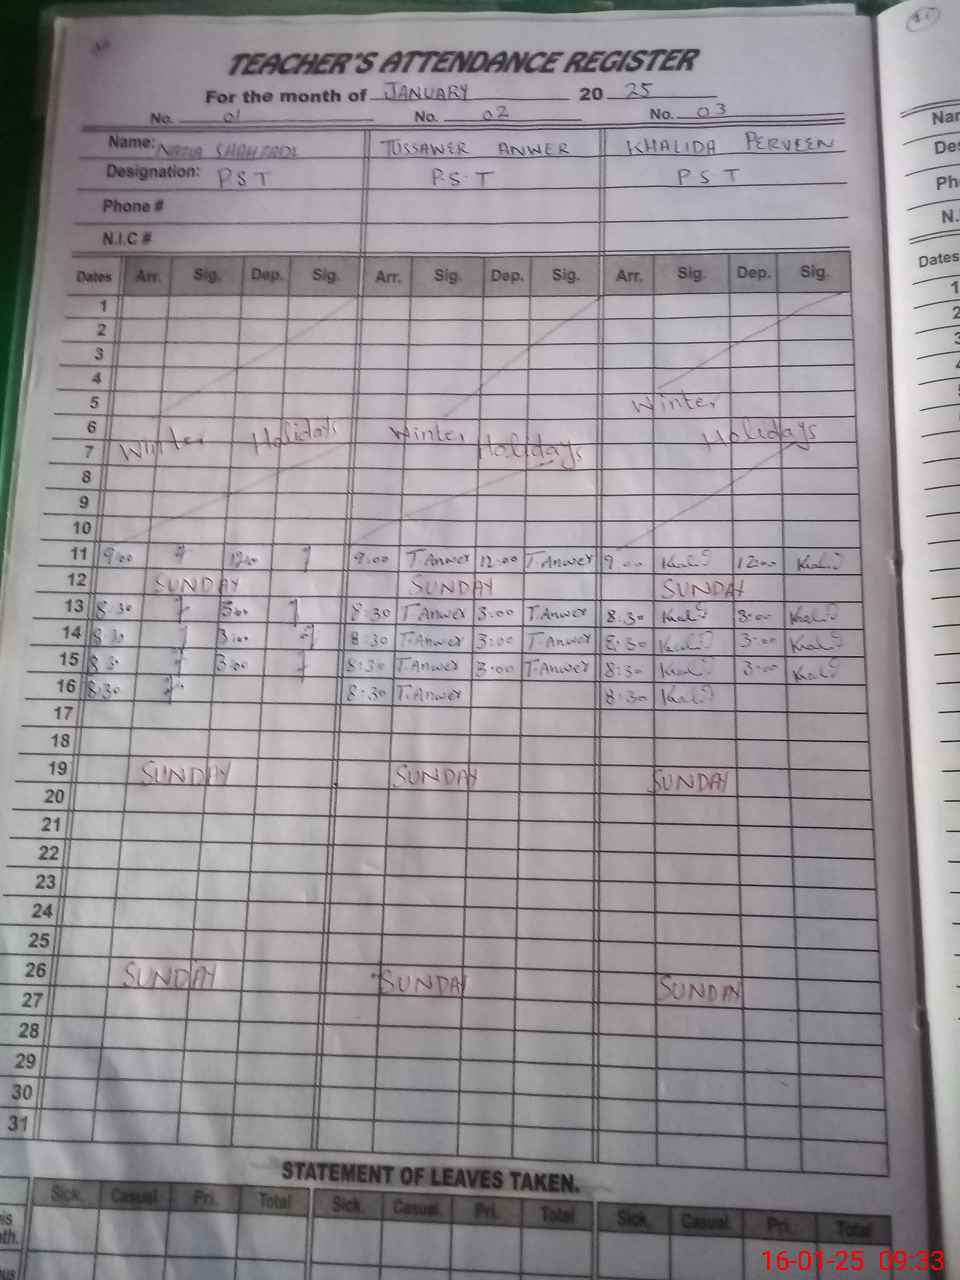 TEACHER'S ATTENDANCE REGISTER
For the month of JANUARY 20 25
No. 01 No. 02 No. 03
Name: TUSSAWER ANWER KHALIDA PERVEEN
Designation: P.S T P.S.T P S T
Phone #
N.I.C #
Dates Arr. Sig. Dep. Sig. Arr. Sig. Dep. Sig. Arr. Sig. Dep. Sig.
1
2
3
4
5 Winter
6 Winter Holidays Winter Holidays
7 Winter Holidays
8
9
10
11 9:00 12:00 9:00 T.Anwer 12:00 T.Anwer 9:00 12:00
12 SUNDAY SUNDAY SUNDAY
13 8:30 3:00 8:30 T.Anwer 3:00 T.Anwer 8:30 3:00
14 8:30 3:00 8:30 T.Anwer 3:00 T.Anwer 8:30 3:00
15 8:30 3:00 8:30 T.Anwer 3:00 T.Anwer 8:30 3:00
16 8:30 8:30 T.Anwer 8:30
17
18
19 SUNDAY SUNDAY SUNDAY
20
21
22
23
24
25
26 SUNDAY SUNDAY SUNDAY
27
28
29
30
31
STATEMENT OF LEAVES TAKEN.
Sick. Casual. Pri. Total Sick. Casual. Pri. Total Sick. Casual. Pri. Total
16-01-25 09:33